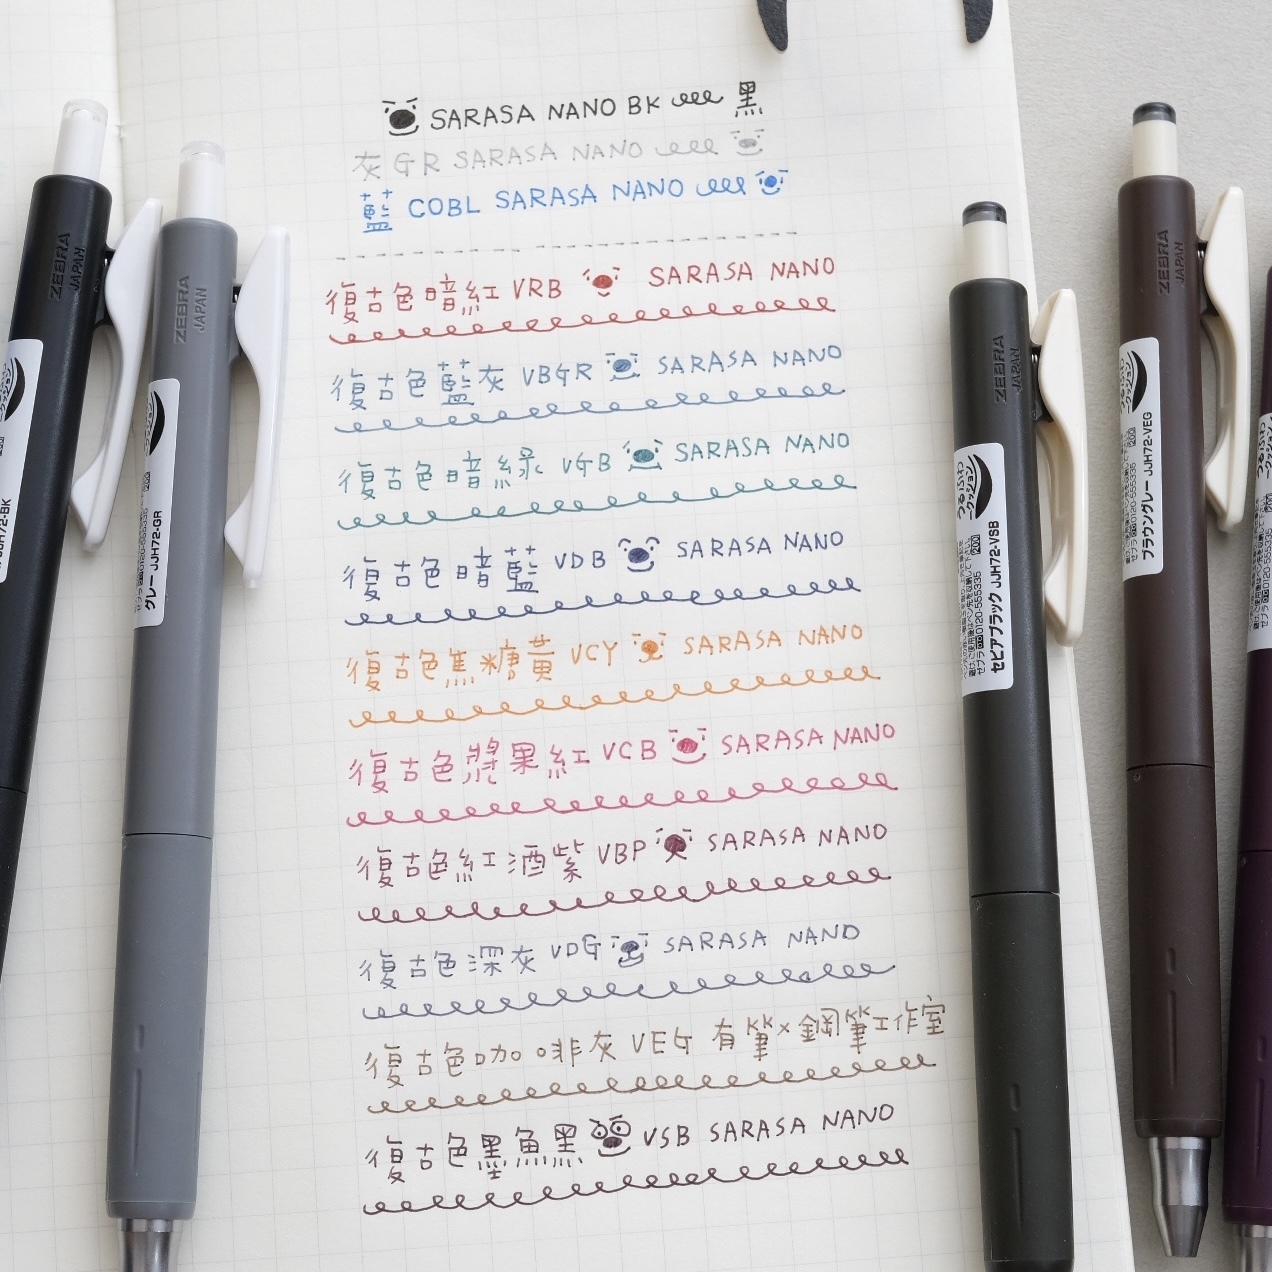 SARASA NANO BK 黑
灰 GR SARASA NANO
藍 COBL SARASA NANO
復古色暗紅 VRB SARASA NANO
復古色藍灰 VBGR SARASA NANO
復古色暗綠 VGB SARASA NANO
復古色暗藍 VDB SARASA NANO
復古色焦糖黃 VCY SARASA NANO
復古色漿果紅 VCB SARASA NANO
復古色紅酒紫 VBP SARASA NANO
復古色深灰 VDG SARASA NANO
復古色咖啡灰 VEG 有筆×鋼筆工作室
復古色墨魚黑 VSB SARASA NANO
ZEBRA
JAPAN
JJH72-BK
ZEBRA
JAPAN
グレー JJH72-GR
ゼブラ 0120-555335
200
ZEBRA
JAPAN
うるふわ
クッション
200
セピアブラック JJH72-VSB
ゼブラ 0120-555335
ZEBRA
JAPAN
うるふわ
クッション
200
ブラウングレー JJH72-VEG
ゼブラ 0120-555335